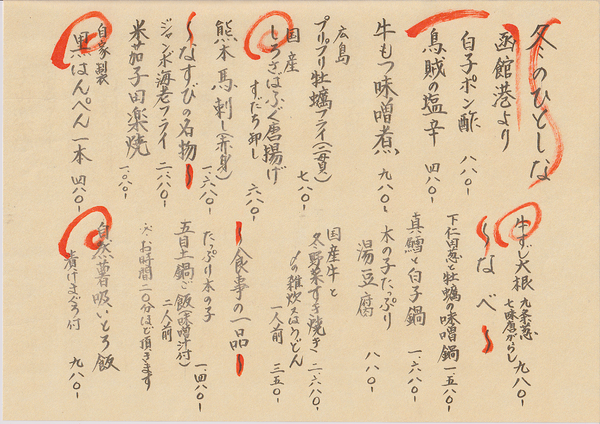 冬のひとしな
函館港より
白子ポン酢 八八〇-
烏賊の塩辛 四八〇-
牛もつ味噌煮 九八〇-
広島
プリプリ牡蠣フライ(二貫) 七八〇-
国産
しろさばふぐ唐揚げ
すだち卸し 六八〇-
熊本馬刺し(赤身) 一.六八〇-
〜なすびの名物〜
ジャンボ海老フライ 二.六八〇-
米茄子田楽焼 一.〇八〇-
自家製
黒はんぺん一本 四八〇-
牛すじ大根 九条葱 七味唐がらし 九八〇-
〜なべ〜
下仁田葱と牡蠣の味噌鍋 一.五八〇
真鱈と白子鍋 一.六八〇-
木の子たっぷり
湯豆腐 八八〇-
国産牛と
冬野菜すき焼き 二.六八〇
〆の雑炊又はうどん
一人前 三五〇-
〜食事の一品〜
たっぷり木の子
五目土鍋ご飯(味噌汁付) 一.四八〇-
二人前
※お時間二〇分ほど頂きます
自然薯吸いとろ飯
漬けまぐろ付 九八〇-